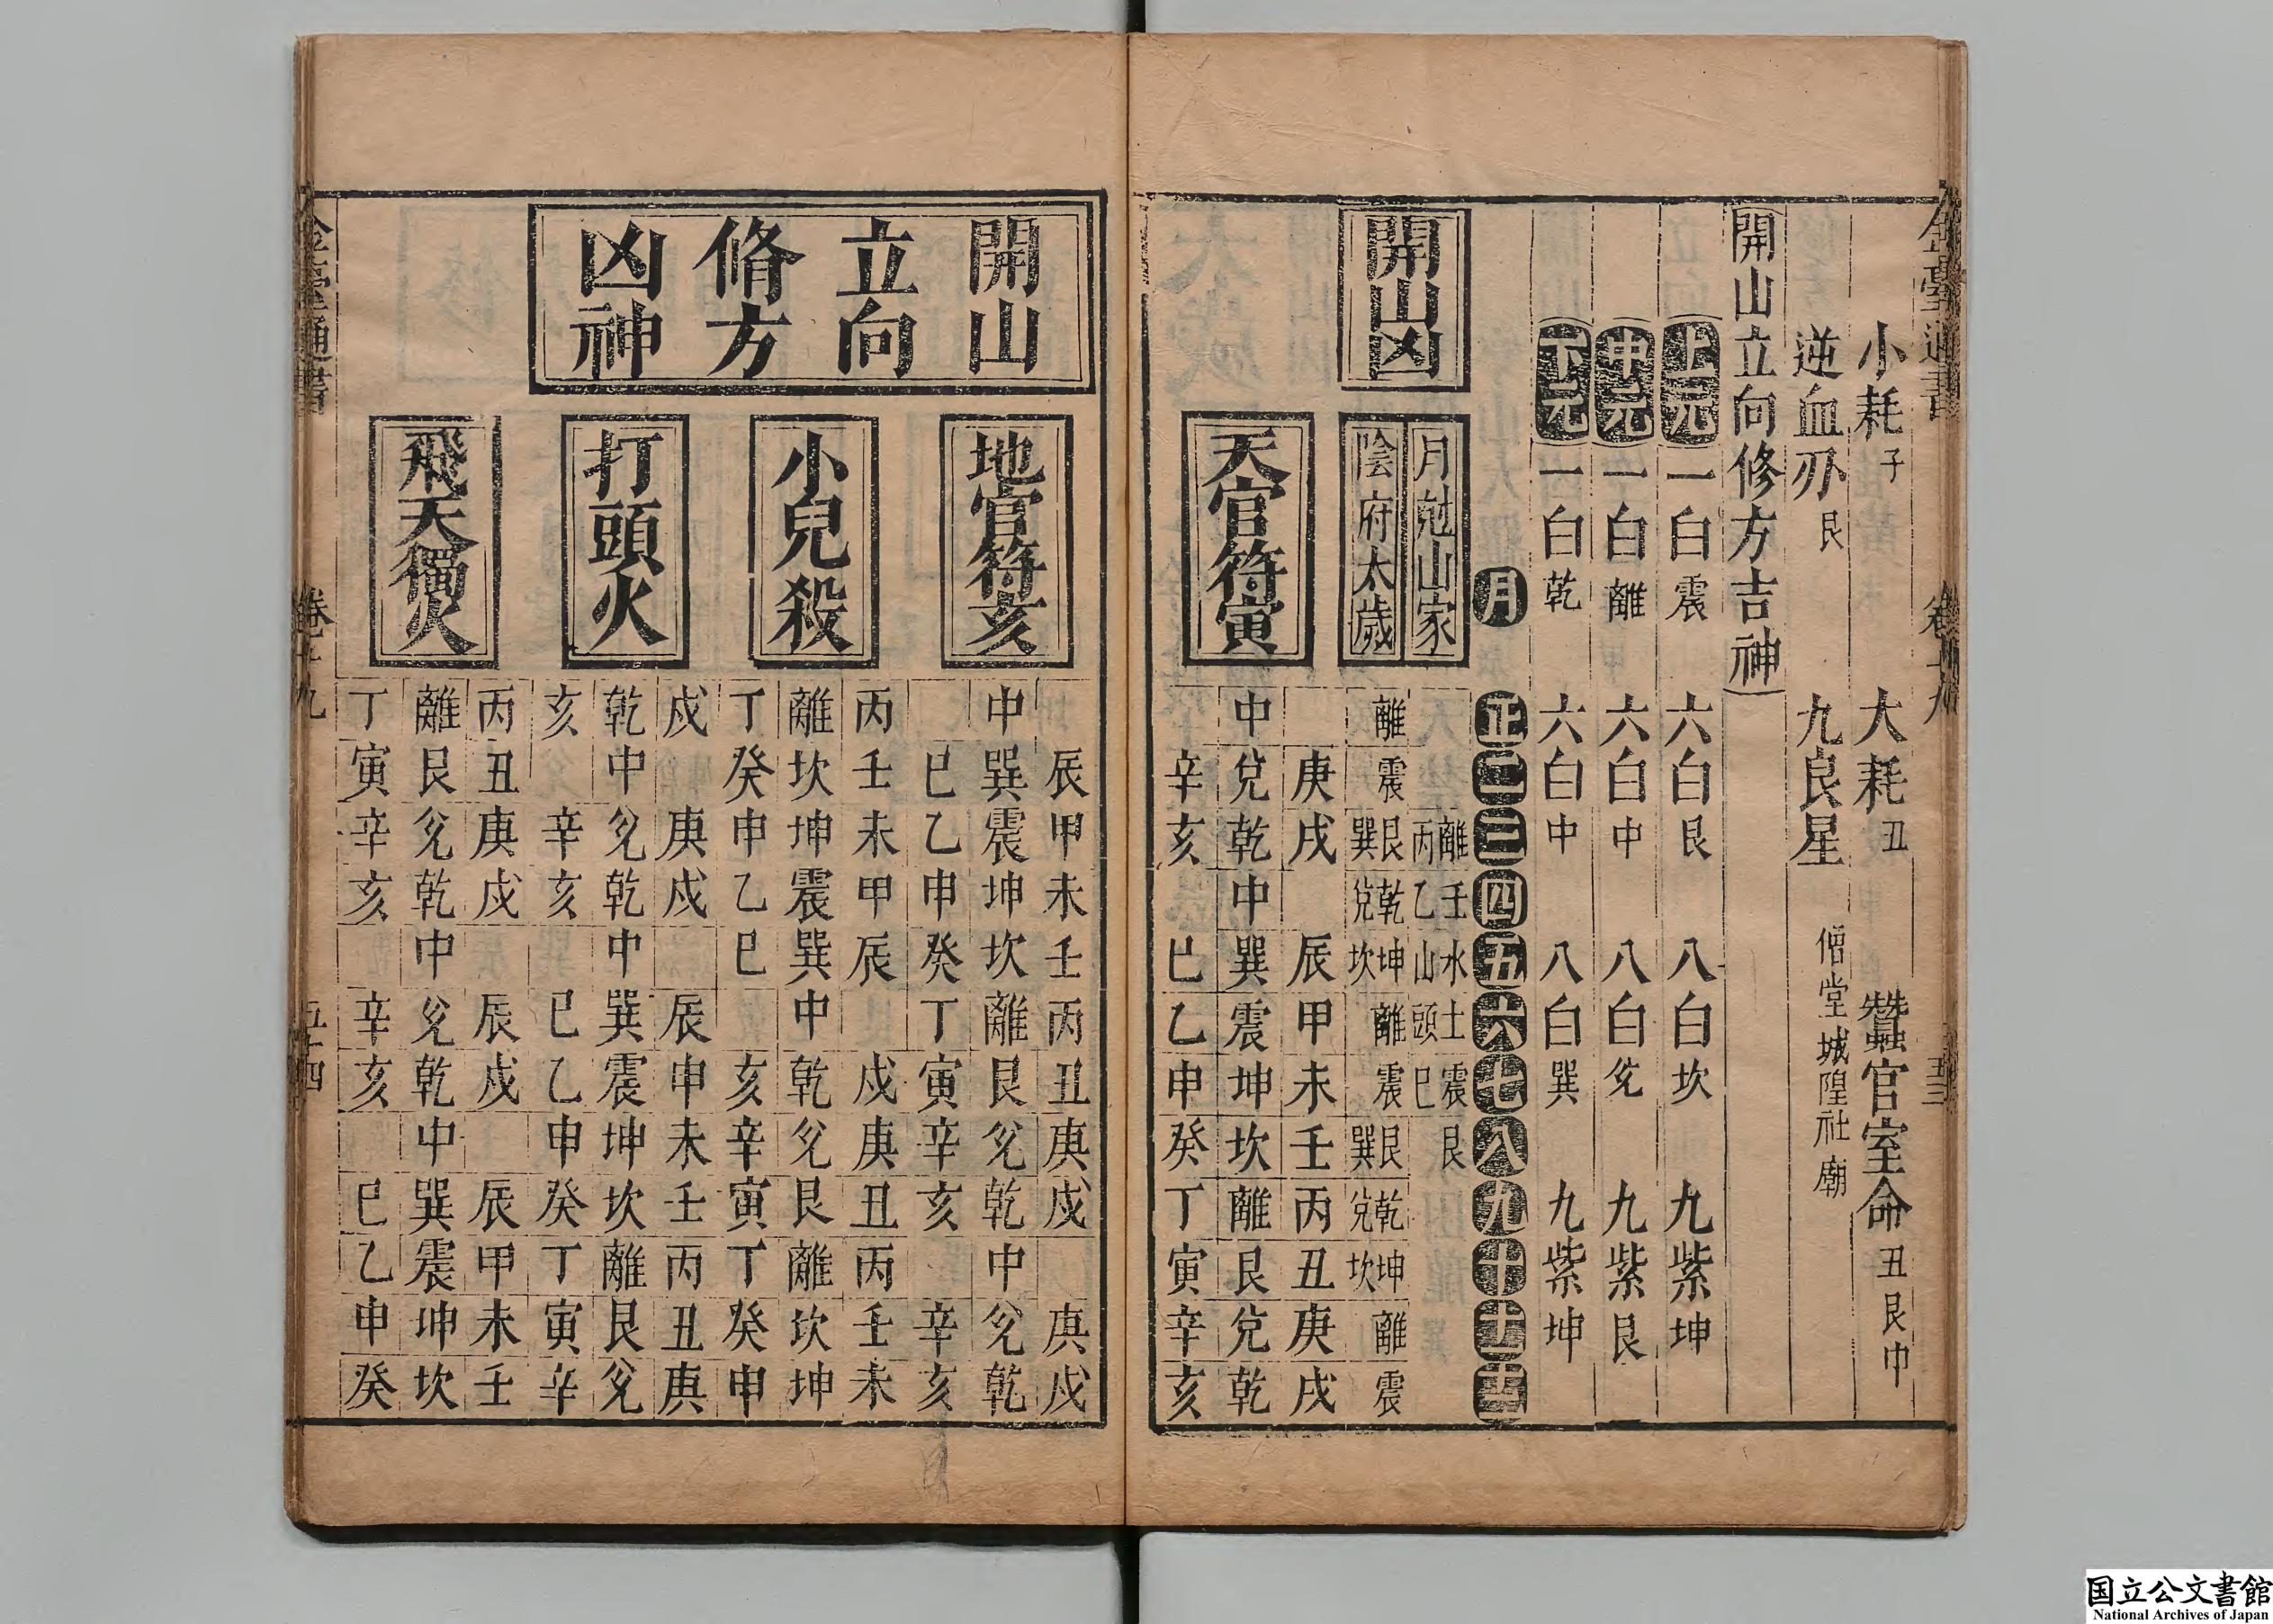 小耗子　大耗丑　蠶官室命丑艮中
逆血刃艮　九良星僧堂城隍社廟
開山立向修方吉神
上元一白震　六白艮　八白坎　九紫坤
中元一白離　六白中　八白兊　九紫艮
下元一白乾　六白中　八白巽　九紫坤
月正二三四五六七八九十十一十二
開山凶
月尅山家　離壬水土震艮
丙乙山頭巳
陰府太歲　離震艮乾坤離震艮乾坤離震
巽兌坎巽兌坎
天官符寅
庚戌辰甲未壬丙丑庚戌
中兌乾中巽震坤坎離艮兌乾
辛亥巳乙申癸丁寅辛亥
開山
立向
脩方
凶神
地官符亥
辰甲未壬丙丑庚戌庚戌
中巽震坤坎離艮兊乾中兊乾
巳乙申癸丁寅辛亥辛亥
小兒殺
丙壬未甲辰戌庚丑丙壬未
離坎坤震巽中乾兊艮離坎坤
丁癸申乙巳亥辛寅丁癸申
打頭火
戌庚戌辰申未壬丙丑庚
乾中兊乾中巽震坤坎離艮兊
亥辛亥巳乙申癸丁寅辛
飛天獨火
丙丑庚戌辰戌辰甲未壬
離艮兊乾中兊乾中巽震坤坎
丁寅辛亥辛亥巳乙申癸
国立公文書館
National Archives of Japan